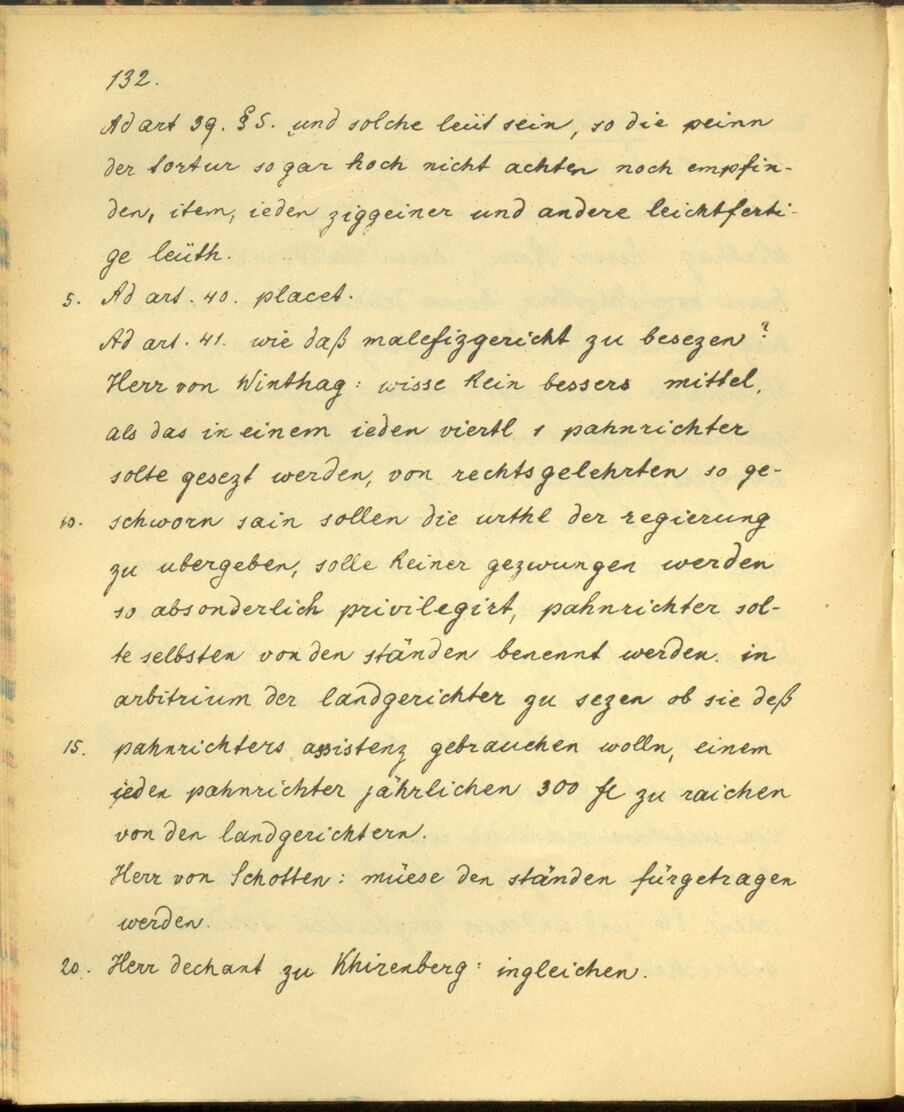 132.
Ad art 39. § 5. und solche leüt sein, so die peinn
der tortur so gar hoch nicht achten noch empfin-
den, item, ieden ziggeiner und andere leichtferti-
ge leüth.
5. Ad art. 40. placet.
Ad art. 41. wie daß malefizgericht zu besezen?
Herr von Winthag: wisse kein bessers mittel,
als das in einem ieden viertl 1 pahnrichter
solte gesezt werden, von rechtsgelehrten so ge-
10. schworn sain sollen die urthl der regierung
zu ubergeben, solle keiner gezwungen werden
so absonderlich privilegirt, pahnrichter sol-
te selbsten von den ständen benennt werden. in
arbitrium der landgerichter zu sezen ob sie deß
15. pahnrichters assistenz gebrauchen wolln, einem
ieden pahnrichter jährlichen 300 fl zu raichen
von den landgerichtern.
Herr von Schotten: müese den ständen fürgetragen
werden.
20. Herr dechant zu Khirenberg: ingleichen.